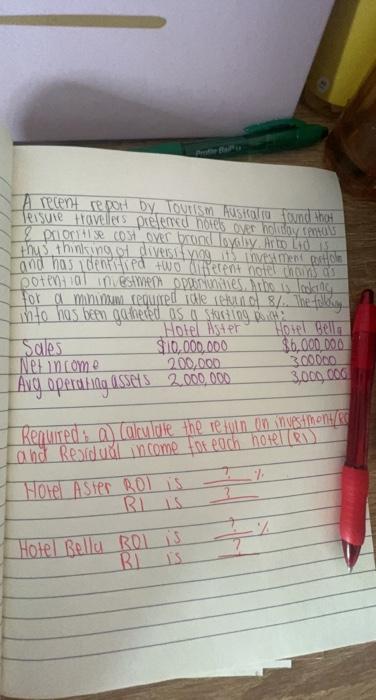 Profile Ball
A recent report by Tourism Australia found that
leisure travellers preferred hotels over holiday rentals
& prioritise cost over brand loyalty. Arbo Ltd is
thus thinking of diversifying its investment portfolio
and has identified two different hotel chains as
potential investment opportunities, Arbo is looking
for a minimum required rate return of 8%. The following
info has been gathered as a starting point:
Hotel Aster Hotel Bella
Sales $10,000,000 $6,000,000
Net income 200,000 300000
Avg operating assets 2,000,000 3,000,000
Required: a) Calculate the return on investment/
and Residual income for each hotel (RI)
Hotel Aster ROI is ? %
RI is ?
Hotel Bella ROI is ? %
RI is ?